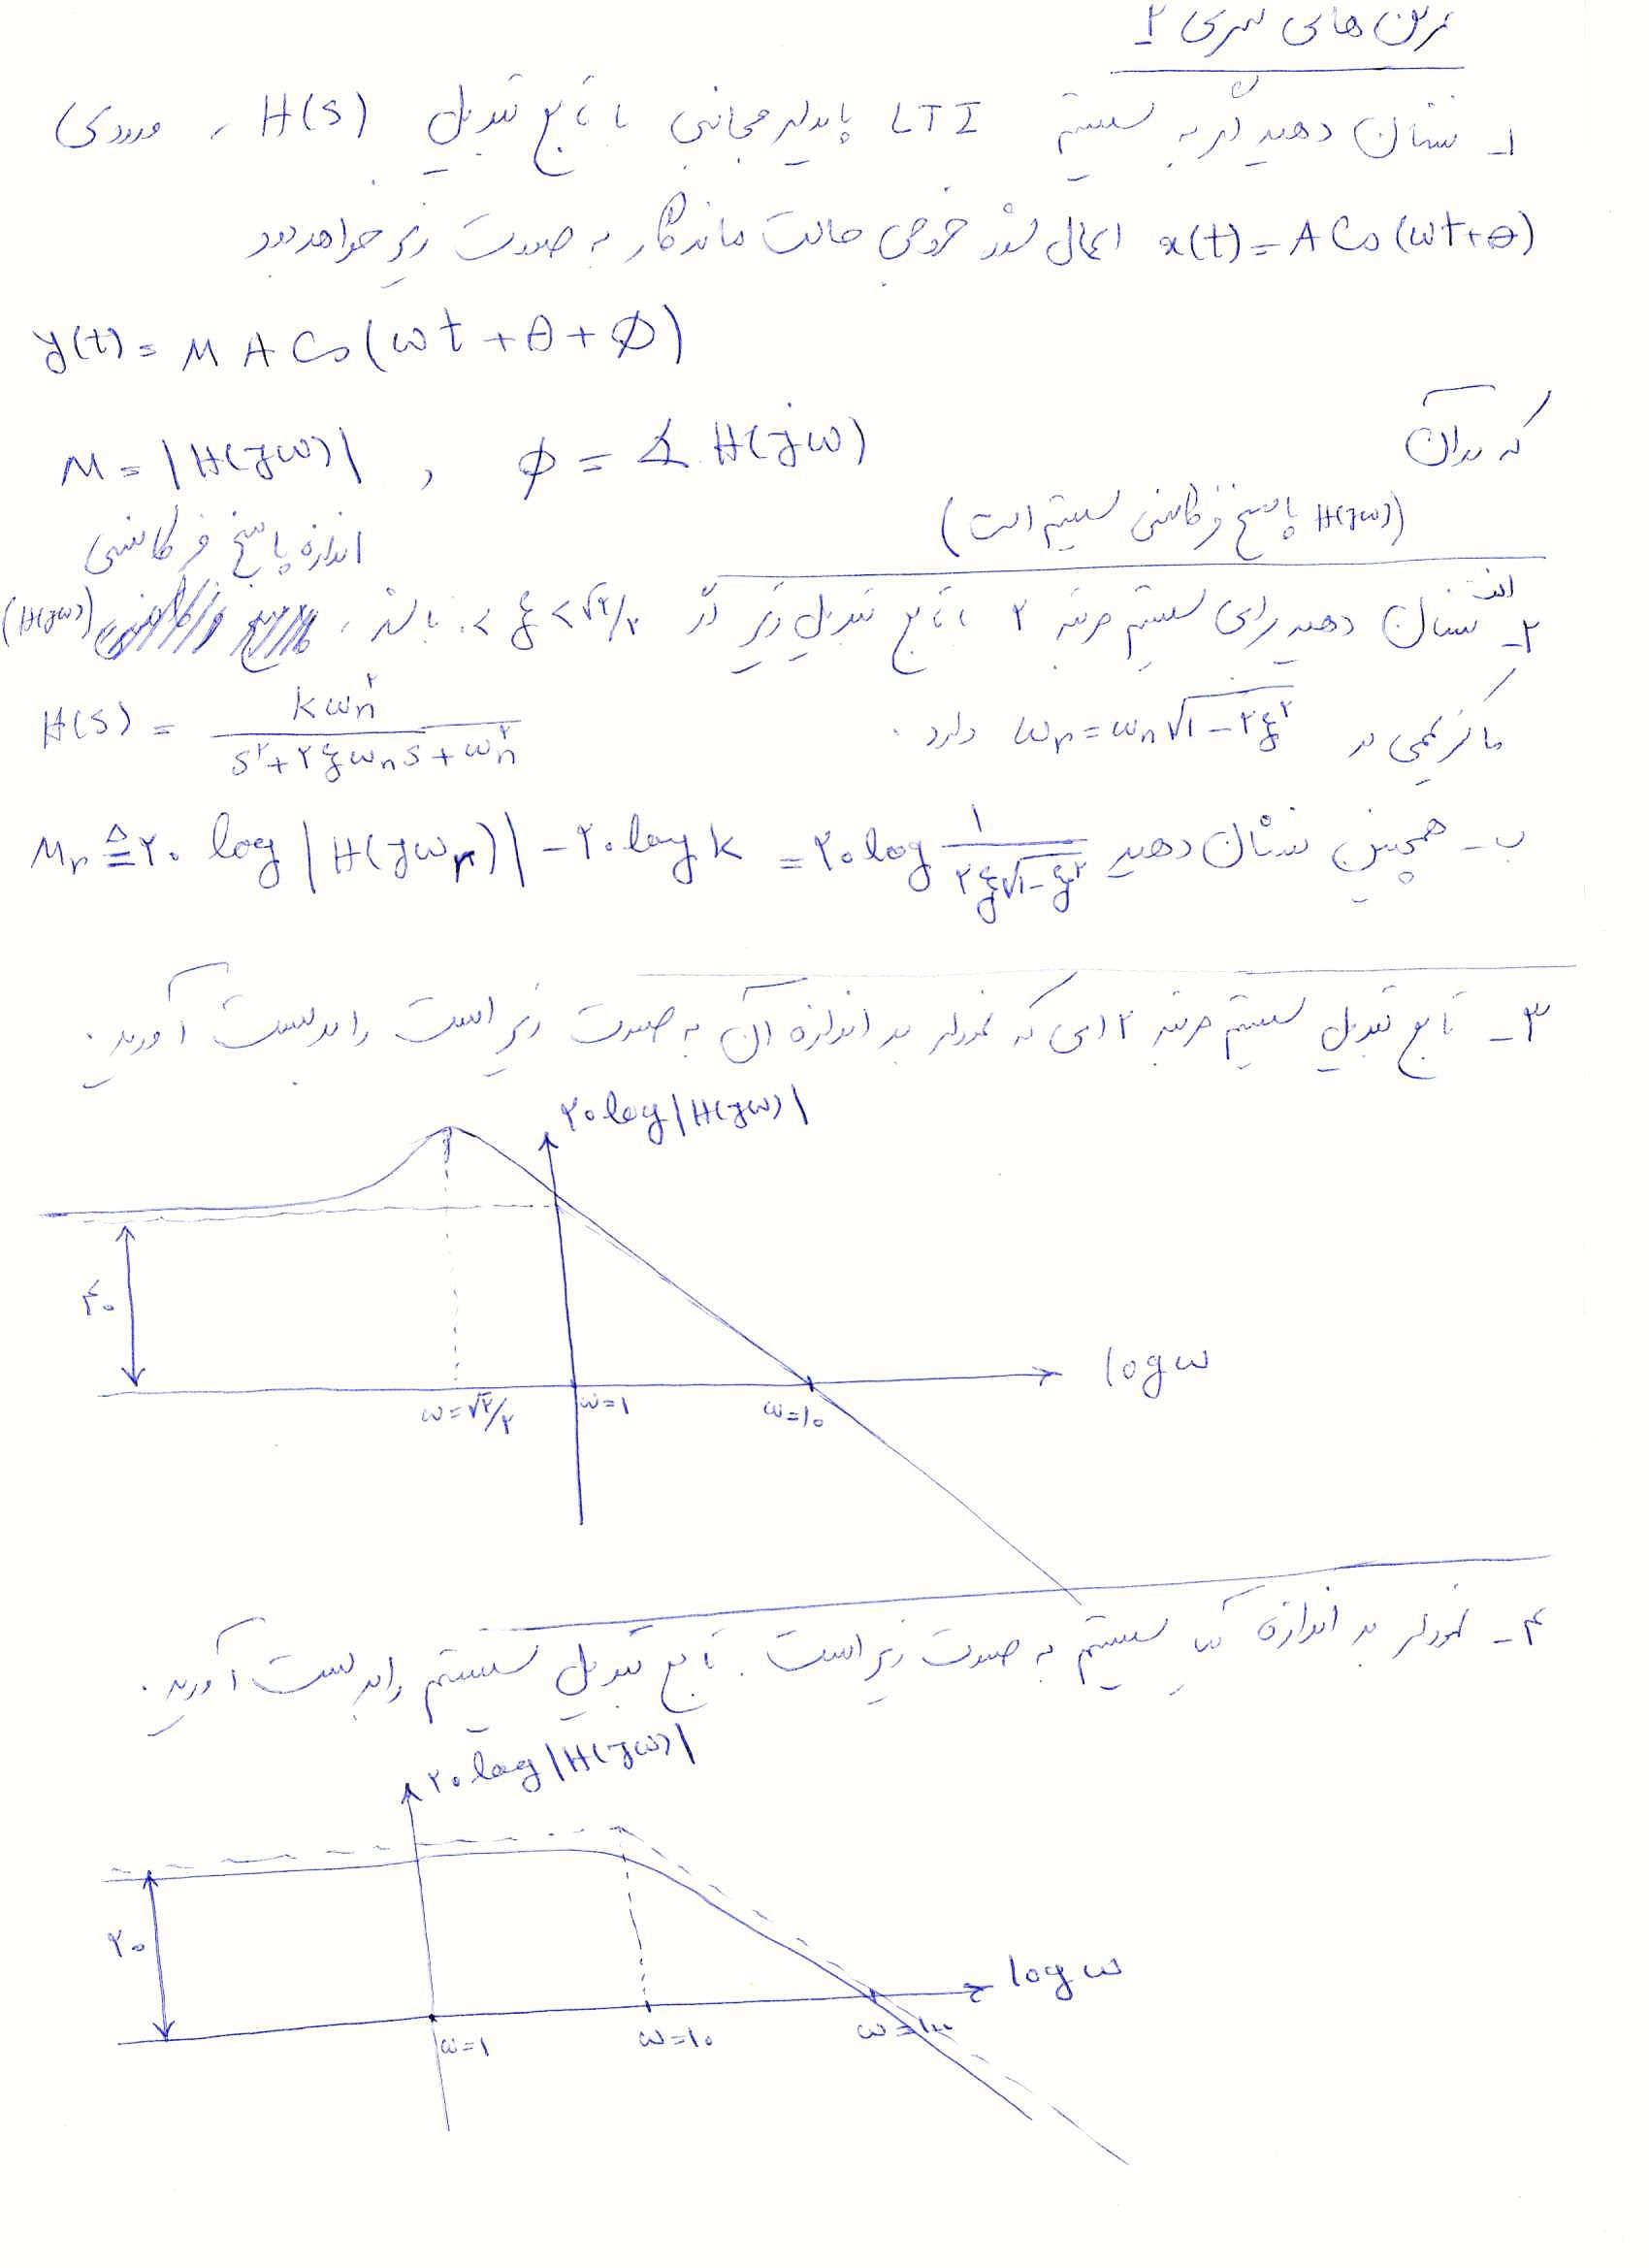 تمرین های سری ۲
۱- نشان دهید اگر به سیستم LTI پایدار مجانبی با تابع تبدیل H(s)، ورودی
x(t)=A Cos(ωt+θ) اعمال شود خروجی حالت ماندگار به صورت زیر خواهد بود
y(t)= M A Cos(ωt+θ+φ)
که در آن
M=|H(jω)| , φ=∡H(jω)
(H(jω) پاسخ فرکانسی سیستم است)
۲- الف نشان دهید برای سیستم مرتبه ۲ با تابع تبدیل زیر اگر ۰<ξ<√۲/۲ باشد، اندازه پاسخ فرکانسی (H(jω))
ماکزیممی در ωr=ωn√(۱-۲ξ^۲) دارد.
H(s)= kωn^۲/(s^۲+۲ξωns+ωn^۲)
ب- همچنین نشان دهید Mr≜۲۰ log|H(jωr)|-۲۰ log k=۲۰ log ۱/(۲ξ√(۱-ξ^۲))
۳- تابع تبدیل سیستم مرتبه ۲ ای که نمودار بد اندازه آن به صورت زیر است را بدست آورید.
۲۰ log|H(jω)|
۴۰
log ω
ω=√۲/۲ ω=۱ ω=۱۰
۴- نمودار بد اندازه یک سیستم به صورت زیر است. تابع تبدیل سیستم را بدست آورید.
۲۰ log|H(jω)|
۲۰
log ω
ω=۱ ω=۱۰ ω=۱۰۰